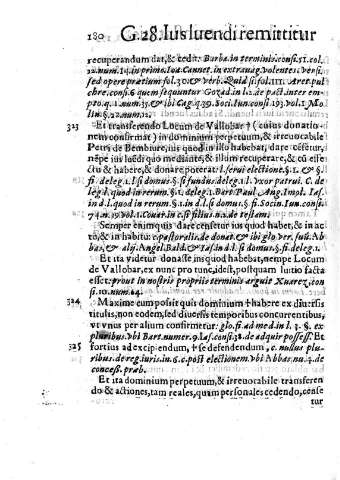 180 G.28. Ius luendi remittitur
recuperandum dat, & cedit. Barba. in termino. consi. 51. col.
12. num. 14. in primo. Ioa. Cannet. in extravag. volentes. versi.
sed opere prætium fol. 30. versi. sed quæro fol. 111. Aret. pul
chre. consi. 6. quem sequuntur Gozad. in l. 2. de pact. inter em-
pto. q. 1. num. 35. & ibi Cag. q. 39. Soci. Iun. consi. 193. vol. 1. Mo
lin. §. 22. num. 12.
323 Et transferendo Locum de Vallobar † ( cuius donatio-
nem confirmat ) in dominium perpetuum, & irreuocabile
Petri de Bembiure, ius quod in illo habebat, dare cēsetur,
nēpe ius luēdi quo mediante, & illum recuperare, & cū effe
ctu & habere, & donare poterat. l. serui electione. §. 1. & §.
fi. deleg. 1. l. si domus. §. si fundu. deleg. 1. l. Vxor patrui. C. de
leg. l. quod in rerum. §. 1. deleg. 1. Bart. Paul. Aug. Imol. Ias.
in d. l. quod in rerum. §. 1. in d. l. si domus. §. fi. Socin. Iun. consi.
74. n. 19. vol. 1. Couar. in c. si filius n. 2. de testam.
Semper enim quis dare censetur ius quod habet, & in ac
tu, & in habitu: c. pastoralis. de donat. & ibi glo ver. suū. Ab
bas, & alij. Angel. Bald. & Ias. in d. l. si domus. §. fi. deleg. 1.
Et ita videtur donasse ius quod habebat, nempe Locum
de Vallobar, ex nunc pro tunc, idest, postquam luitio facta
esset. prout in nostris propriis terminis arguit Xuarez, con
si. 10. num. 14.
324 Maxime cum possit quis dominium † habere ex diuersis
titulis, non eodem, sed diuersis temporibus concurrentibus,
vt vnus per alium confirmetur. glo. fi. ad med. in l. 3. §. ex
pluribus. vbi Bart. numer. 9. Ias. consi. 38. de adquir possess. Et
325 fortius ad excipiendum, † se defendendum, c. nullus plu-
ribus. de reg. iuris. in 6. c. post electionem. vbi Abbas nu. 4. de
concess. præb.
Et ita dominium perpetuum, & irreuocabile transferen
do & actiones, tam reales, quam personales cedendo, cense
tur